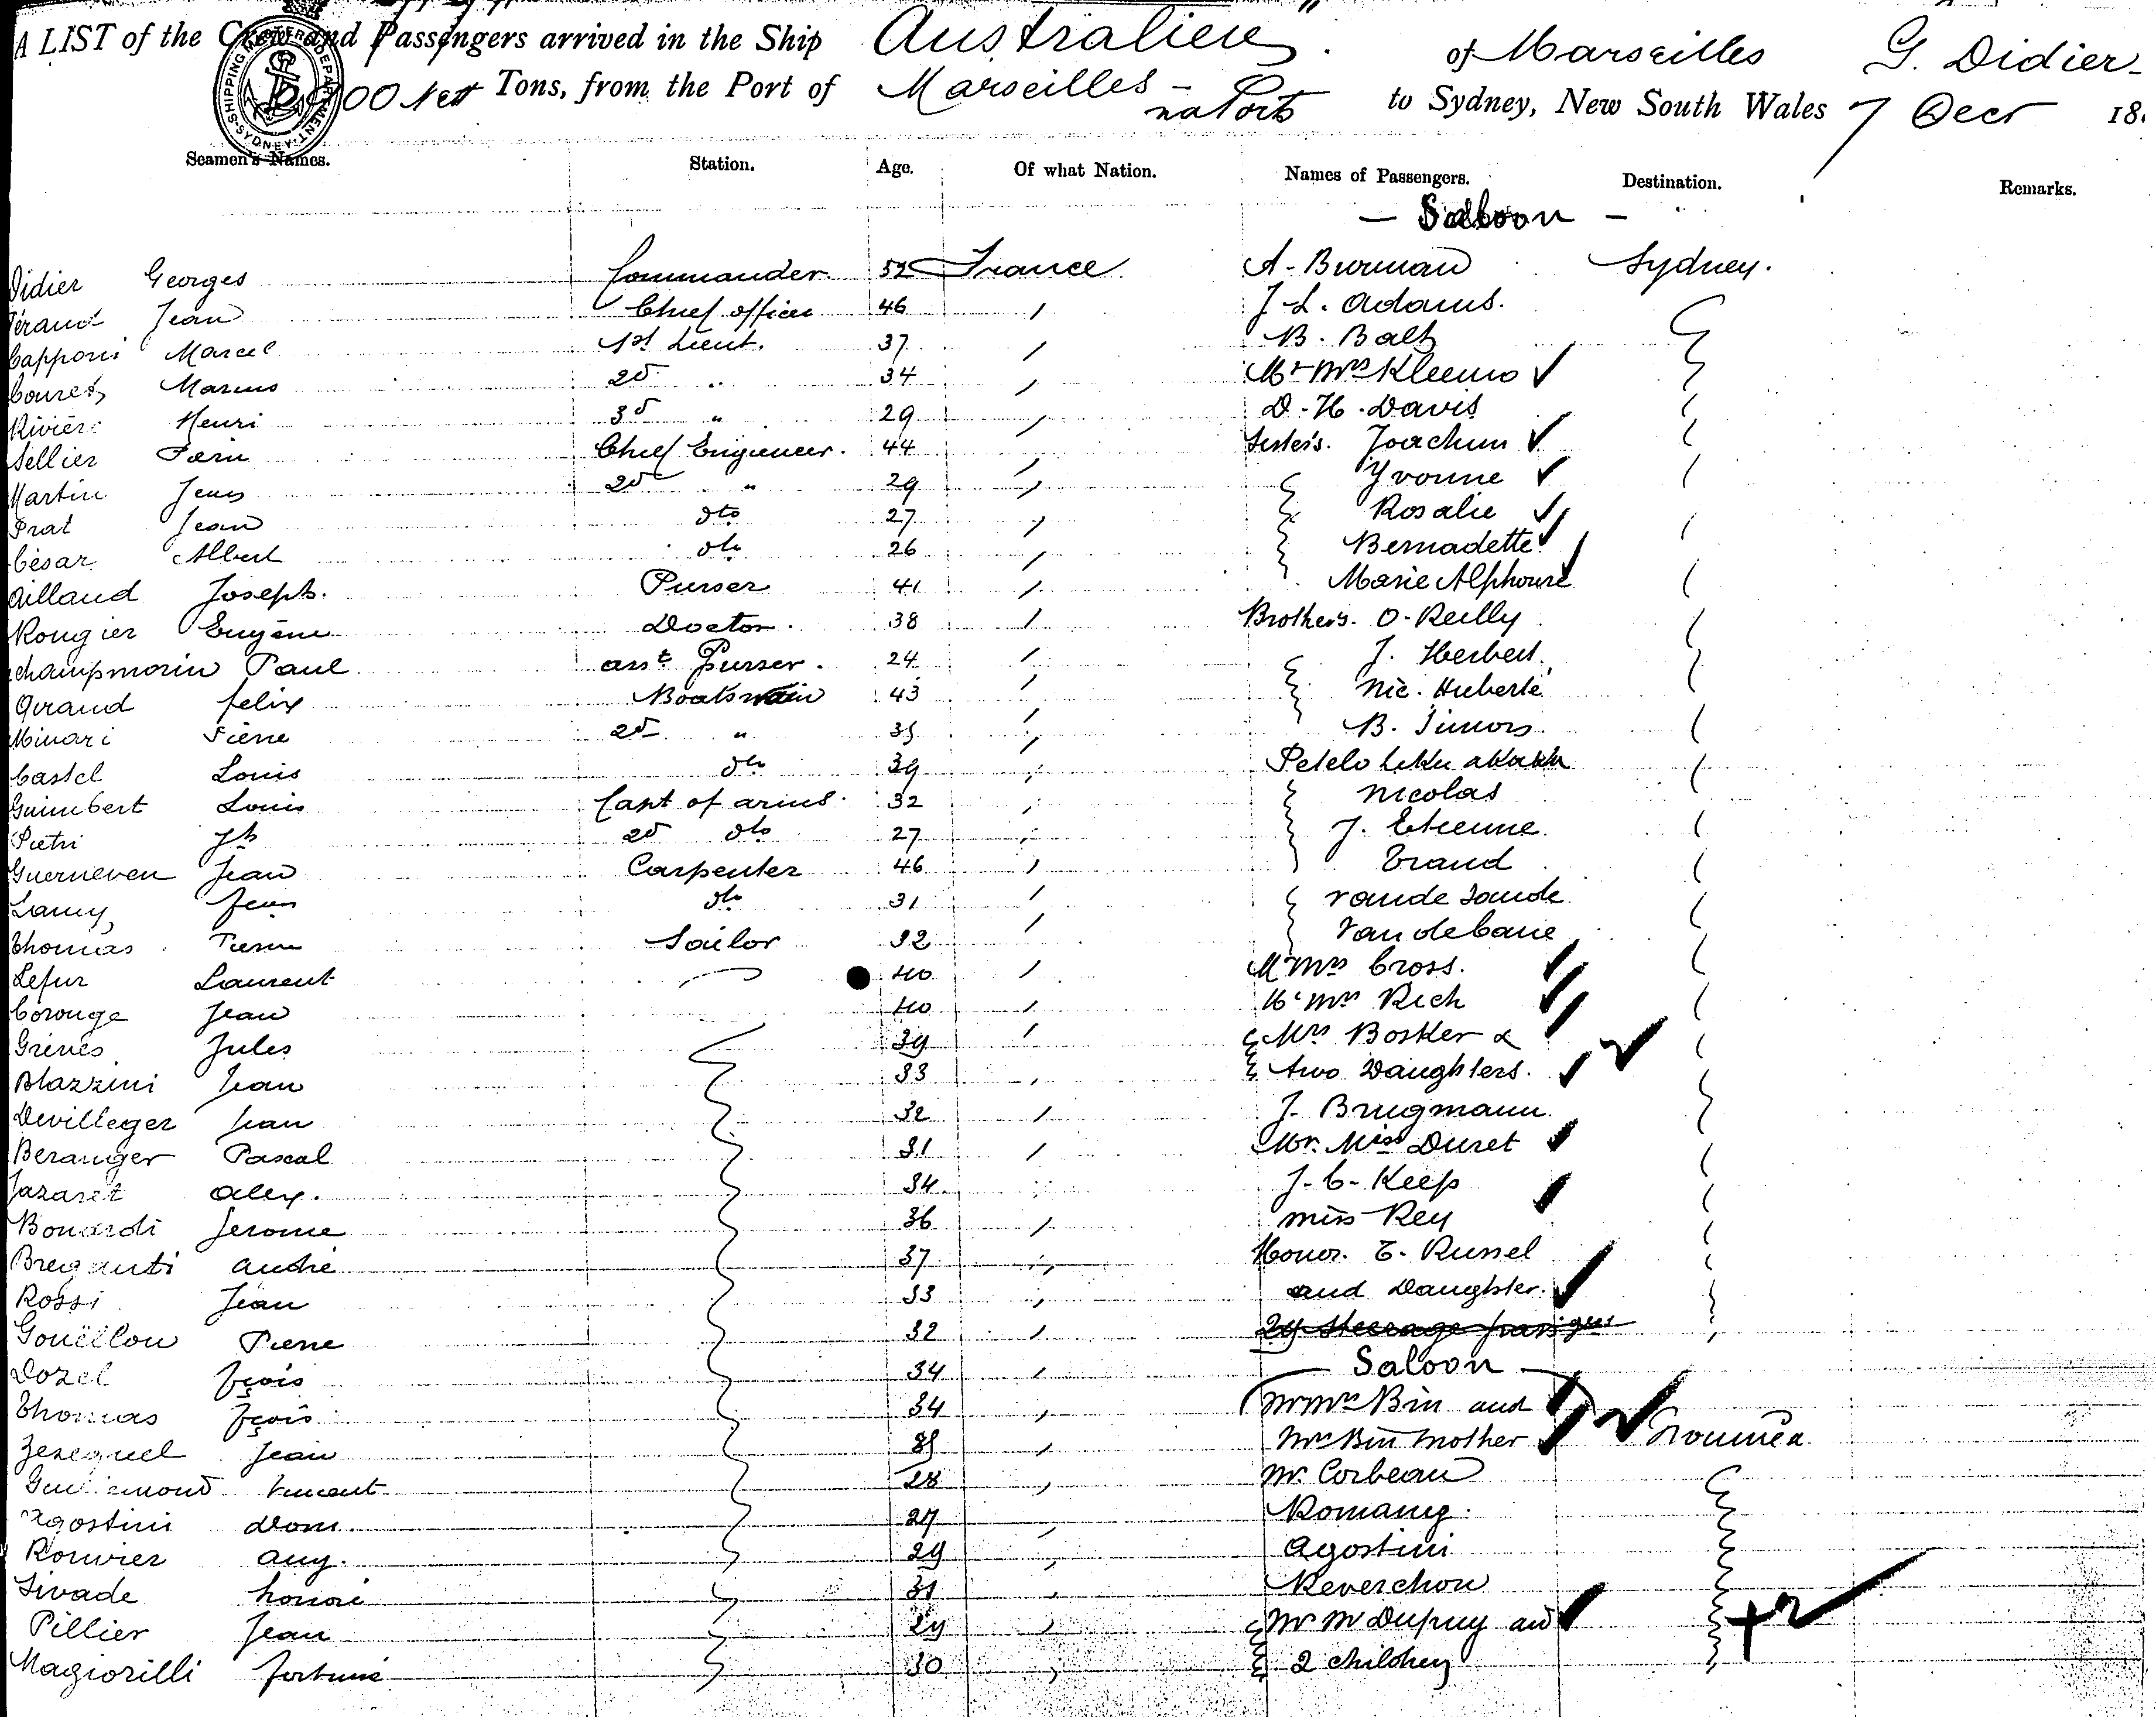 A LIST of the Crew and Passengers arrived in the Ship Australien of Marseilles G. Didier
Nett Tons, from the Port of Marseilles to Sydney, New South Wales 7 Decr 18
SHIPPING MASTER'S DEPARTMENT SYDNEY
Seamen's Names. Station. Age. Of what Nation. Names of Passengers. Destination. Remarks.
— Saloon —
Didier Georges Commander 52 France A. Burman Sydney.
Jean Chief officer 46 J. L. Adams.
Capponi Marcel 1st Lieut. 37 B. Balt
Couret Marius 2d " 34 Mr Mrs Kleemo
Rivière Henri 3d " 29 D. H. Davis
Sellier Chief Engineer. 44 Sisters. Joachim
Martin 2d " 29 Yvonne
Prat Jean dto 27 Rosalie
César Albert dto 26 Bernadette
Aillaud Joseph. Purser 41 Marie Alphonse
Rougier Eugène Doctor. 38 Brothers. O. Reilly
Champmorin Paul asst Purser. 24 J. Herbert
Giraud Felix Boatswain 43 Hubert
Minari Pierre 2d " 35 B. Simors
Castel Louis dto 39 Petelo
Guimbert Louis Capt of arms. 32 Nicolas
Pietri Jh 2d dto 27 J. Etienne
Guerneven Jean Carpenter 46
Lamy Jean dto 31
Thomas Pierre Sailor 32
Lefur Laurent 40 Mr Mrs Cross.
Corouge Jean 40 Mr Mrs Rich
Grènes Jules 39 Mrs Bosker &
Blazzini Jean 33 two Daughters.
Devilleger Jean 32 J. Brugmann
Beranger Pascal 31 Mr. Miss Duret
Jazaret Alex. 34 J. C. Keep
Bonardi Jerome 36 Miss Rey
Breganti André 37 Honor. T. Russel
Rossi Jean 33 and Daughter.
Gouëllou Pierre 32 29 steerage
Dozel fçois 34 — Saloon —
Thomas fçois 34 Mr Mrs Bin and
Jezequel Jean 35 Mrs Bin mother Nouméa
Vincent 28 Mr. Corbeau
Agostini Dom. 27 Romany
Rouvier Aug. 29 Agostini
Sivade honoré 31 Reverchon
Pillier Jean 29 Mr M Dupuy and + 2
Magiorilli fortuné 30 2 children